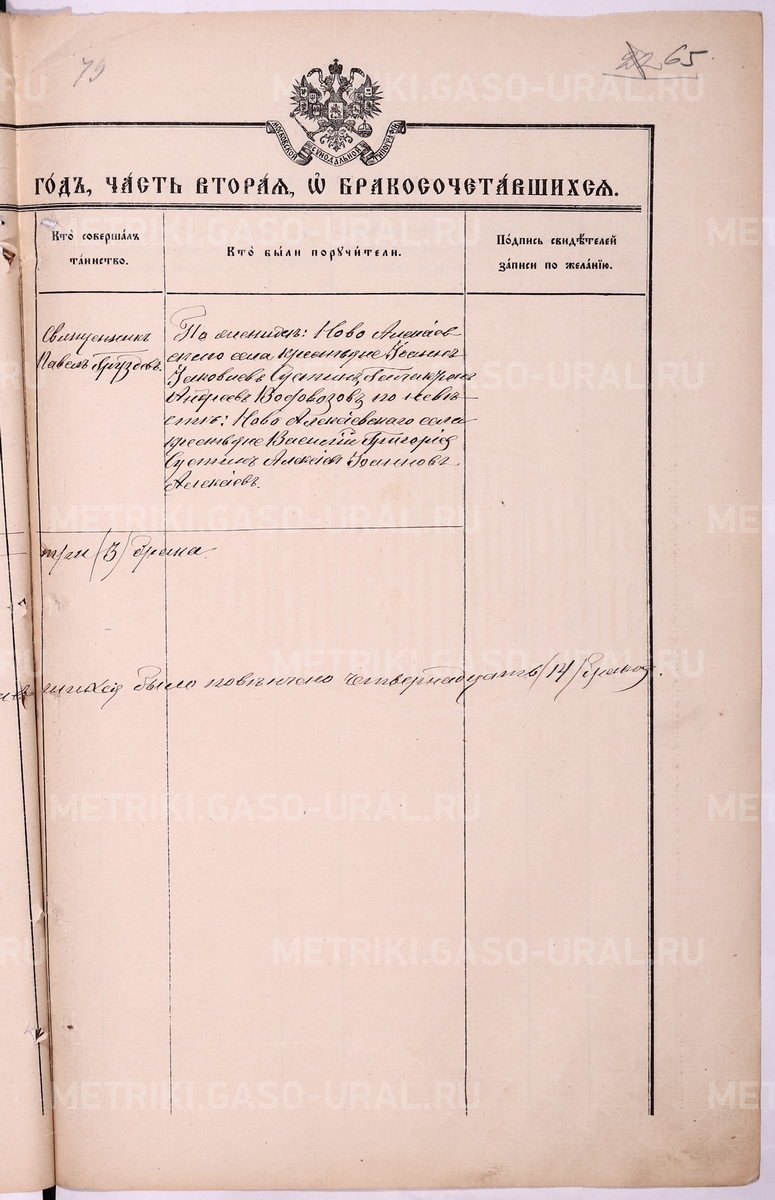 79
22 65.
МОСКОВСКОЙ СѴНОДАЛЬНОЙ ТИПОГРАФІИ
ГО́ДЪ, ЧА́СТЬ ВТОРА́Ѧ, Ѽ БРАКОСОЧЕТА́ВШИХСѦ.
Кто̀ соверша́лъ
та́инство.
Кто̀ бы́ли поручи́тели.
По́дпись свидѣ́телей
за́писи по жела́нїю.
Священникъ
Павелъ Груздевъ.
По женихѣ: Ново Алексѣев
скаго села крестьяне Іоаннъ
Іаковлевъ Сустинъ,
Андреевъ Водовозовъ, по невѣ-
стѣ: Ново Алексѣевскаго села
крестьяне Василій Григорьев
Сустинъ Алексѣй Іоанновъ
Алексѣевъ.
три (3) брака.
шихся было повѣнчано четвернадцать (14) браковъ.
METRIKI.GASO-URAL.RU